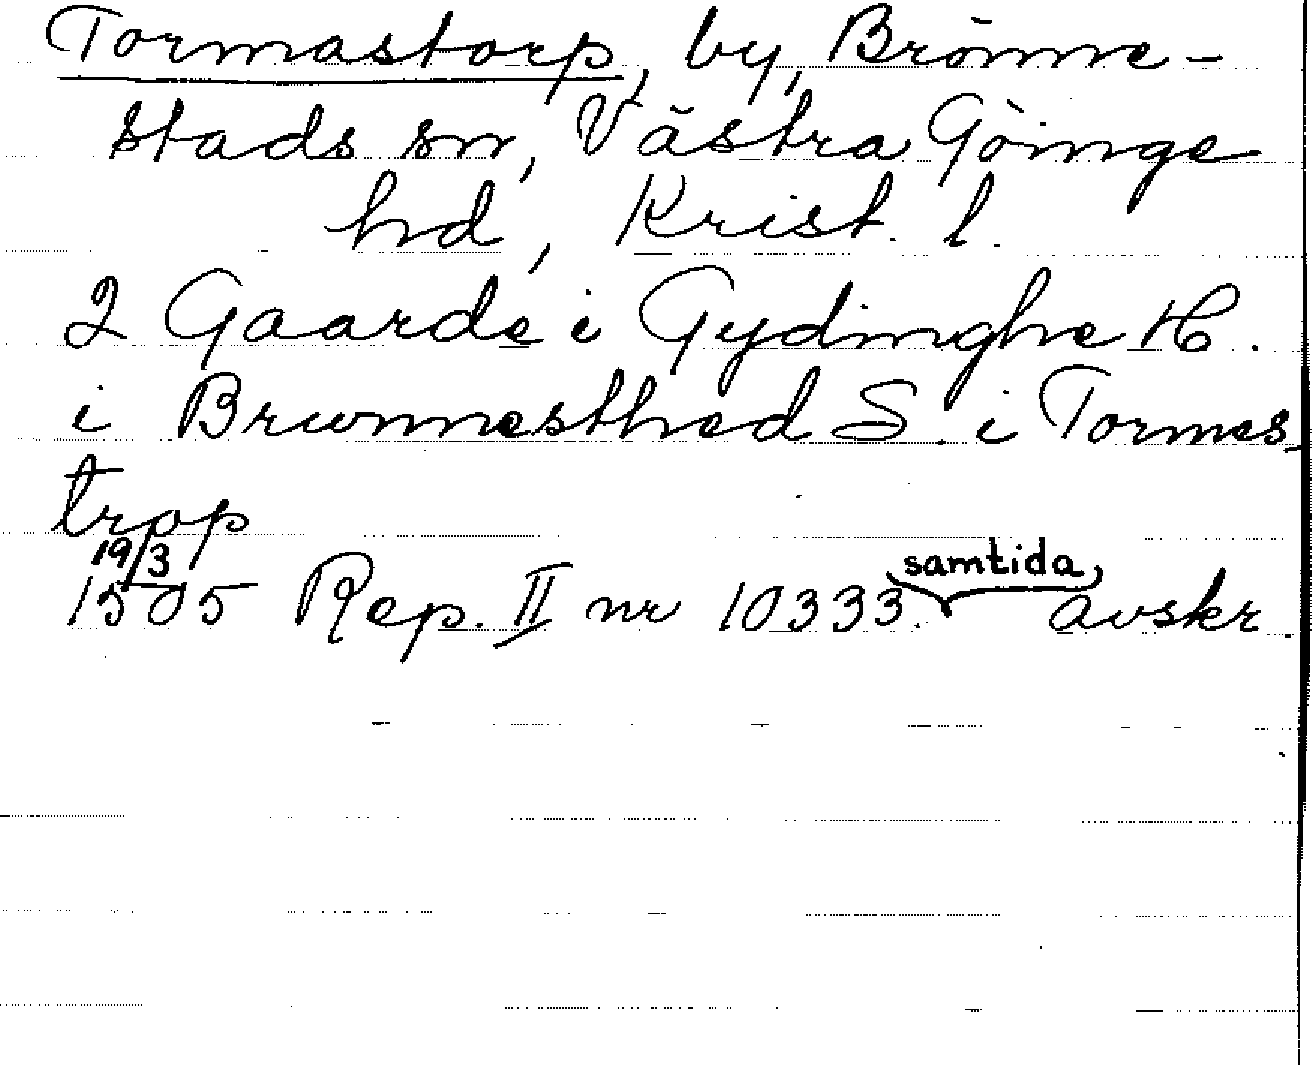 Tormastorp, by, Brönne-
stads sn, Västra Göinge
hd, Krist. l.
2 Gaarde i Gydinghe H.
i Brunnesthed S. i Tormes
trop
19/3
1505 Rep. II nr 10333. samtida avskr.